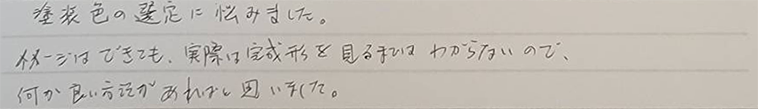 塗装色の選定に悩みました。
イメージはできても、実際は完成形を見るまではわからないので、
何か良い方法があればと思いました。